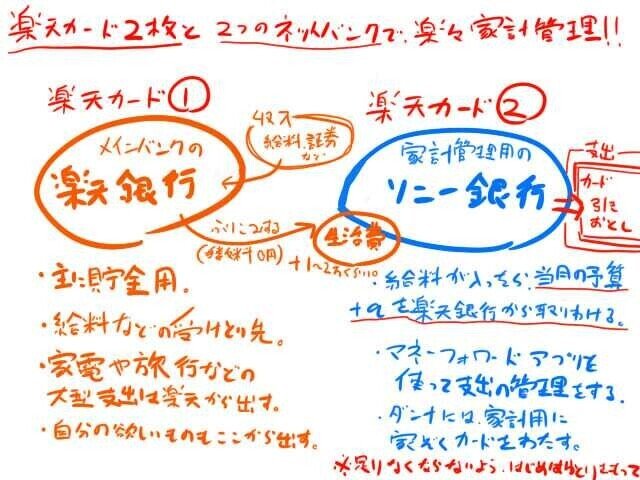 楽天カード2枚と 2つのネットバンクで、楽々家計管理!!
楽天カード①
メインバンクの
楽天銀行
収入
給料、証券
など
ふりこみする
(手数料0円)
生活費
+1~2万くらい
・主に貯金用。
・給料などの受けとり先。
・家電や旅行などの
大型支出は楽天から出す。
・自分の欲しいものもここから出す。
楽天カード②
家計管理用の
ソニー銀行
支出
カード
引き
おとし
・給料が入ったら、当月の予算
+αを楽天銀行から取りわける。
・マネーフォワードアプリを
使って支出の管理をする。
・ダンナには、家計用に
家ぞくカードをわたす。
※足りなくならないよう、はじめはゆとりをもって